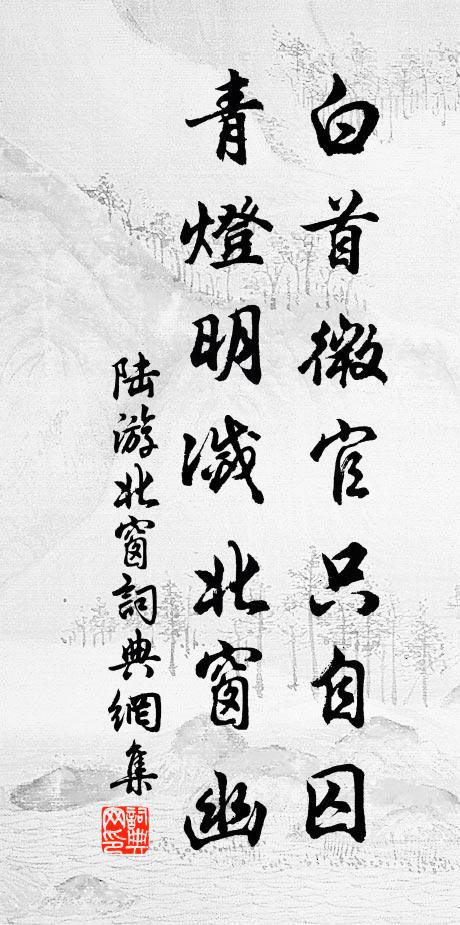 白首微官只自囚
青燈明滅北窗幽
陆游北窗詞典網集
詞典網印